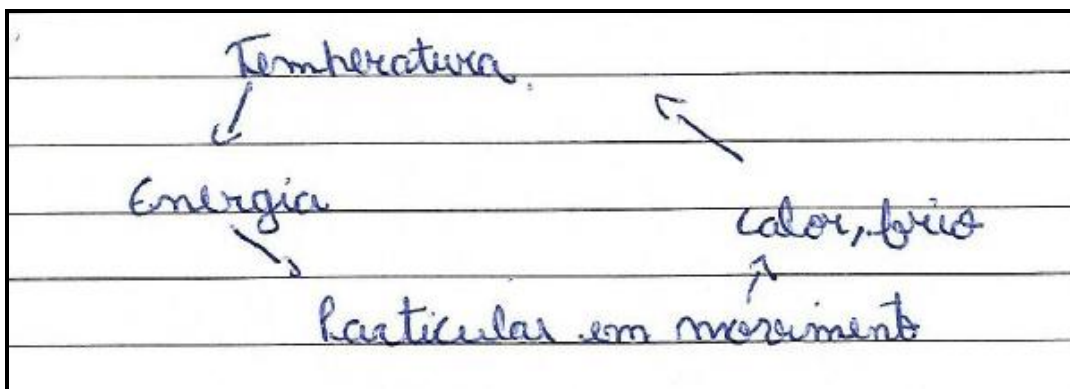 Temperatura
Energia
calor, frio
Particulas em movimento